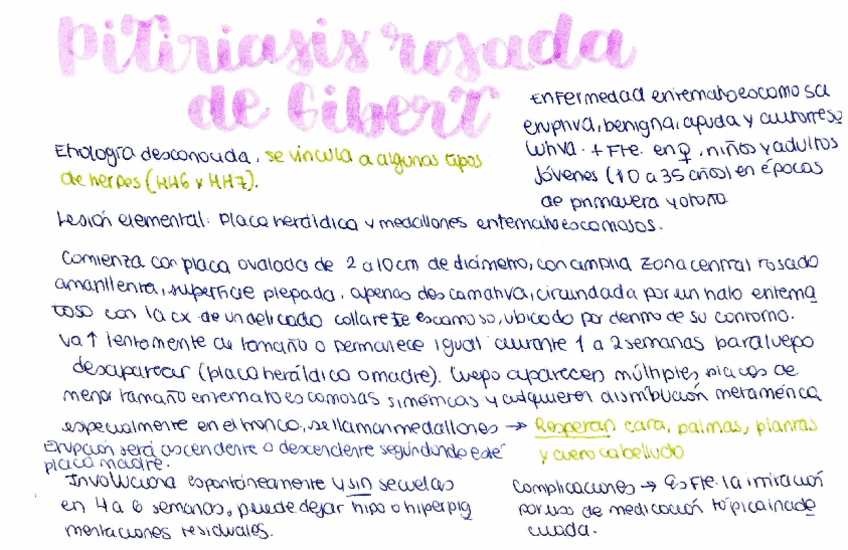 Pitiriasis rosada
de Gibert
Enfermedad eritematoescamosa
eruptiva, benigna, aguda y autorreso
lutiva. + Fte. en ♀, niños y adultos
jóvenes (10 a 35 años) en épocas
de primavera y otoño
Etiología desconocida, se vincula a algunos tipos
de herpes (HH6 y HH7).
Lesión elemental: Placa heráldica y medallones eritematoescamosos.
Comienza con placa ovalada de 2 a 10cm de diámetro, con amplia zona central rosado
amarillenta, superficie plegada, apenas descamativa, circundada por un halo eritema
toso con la cx de un delicado collarete escamoso, ubicado por dentro de su contorno.
Va ↑ lentamente de tamaño o permanece igual durante 1 a 2 semanas para luego
desaparecer (placa heráldica o madre). Luego aparecen múltiples placas de
menor tamaño eritematoescamosas simétricas y adquieren distribución metamérica
especialmente en el tronco, se llaman medallones → Respetan cara, palmas, plantas
y cuero cabelludo
Erupción será ascendente o descendente según donde esté
placa madre.
Involuciona espontáneamente y sin secuelas
en 4 a 6 semanas, puede dejar hipo o hiperpig
mentaciones residuales.
Complicaciones → Es Fte. la irritación
por uso de medicación tópica inade
cuada.